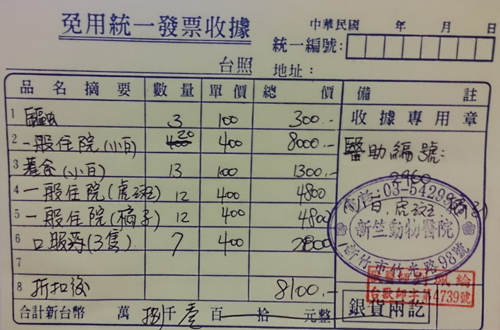 免用統一發票收據
中華民國 年 月 日
統一編號:
台照
地址:
品名摘要 數量 單價 總價 備註
1 驅蟲 3 100 300.-
收據專用章
2 一般住院(小白) 20 400 8000.-
醫助編號:
2960
3 養食(小白) 13 100 1300.-
4 一般住院(虎斑) 12 400 4800
5 一般住院(橘子) 12 400 4800
小白 虎斑
新竺動物醫院
新竹市竹光路98號
6 口服藥(3隻) 7 400 2800
7
8 折扣後 8100.-
4739號
合計新台幣 萬 捌千壹百 拾 元整
銀貨兩訖